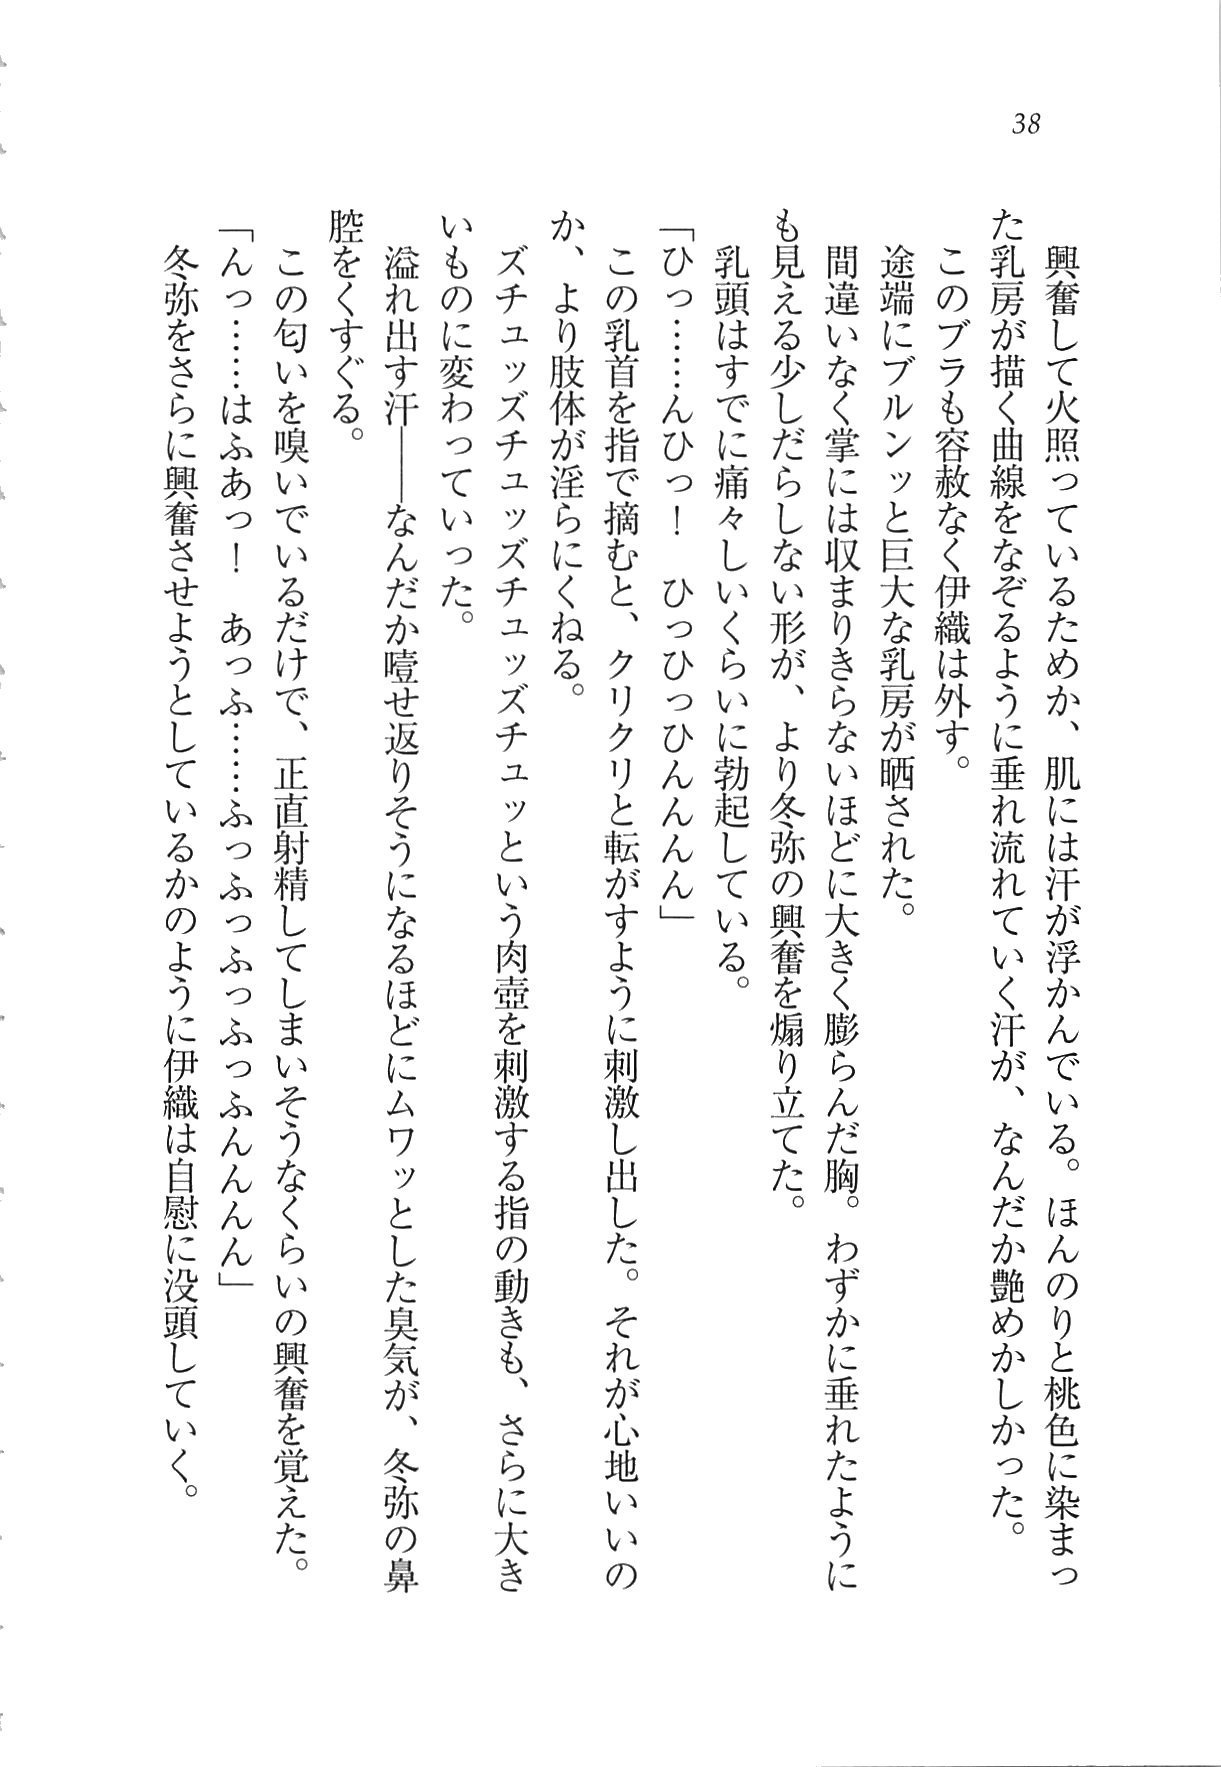 38
興奮して火照っているためか、肌には汗が浮かんでいる。ほんのりと桃色に染まっ
た乳房が描く曲線をなぞるように垂れ流れていく汗が、なんだか艶めかしかった。
このブラも容赦なく伊織は外す。
途端にブルンッと巨大な乳房が晒された。
間違いなく掌には収まりきらないほどに大きく膨らんだ胸。わずかに垂れたように
も見える少しだらしない形が、より冬弥の興奮を煽り立てた。
乳頭はすでに痛々しいくらいに勃起している。
「ひっ……んひっ！　ひっひっひんんんん」
この乳首を指で摘むと、クリクリと転がすように刺激し出した。それが心地いいの
か、より肢体が淫らにくねる。
ズチュッズチュッズチュッズチュッという肉壺を刺激する指の動きも、さらに大き
いものに変わっていった。
溢れ出す汗――なんだか噎せ返りそうになるほどにムワッとした臭気が、冬弥の鼻
腔をくすぐる。
この匂いを嗅いでいるだけで、正直射精してしまいそうなくらいの興奮を覚えた。
「んっ……はふあっ！　あっふ……ふっふっふっふっふんんんん」
冬弥をさらに興奮させようとしているかのように伊織は自慰に没頭していく。